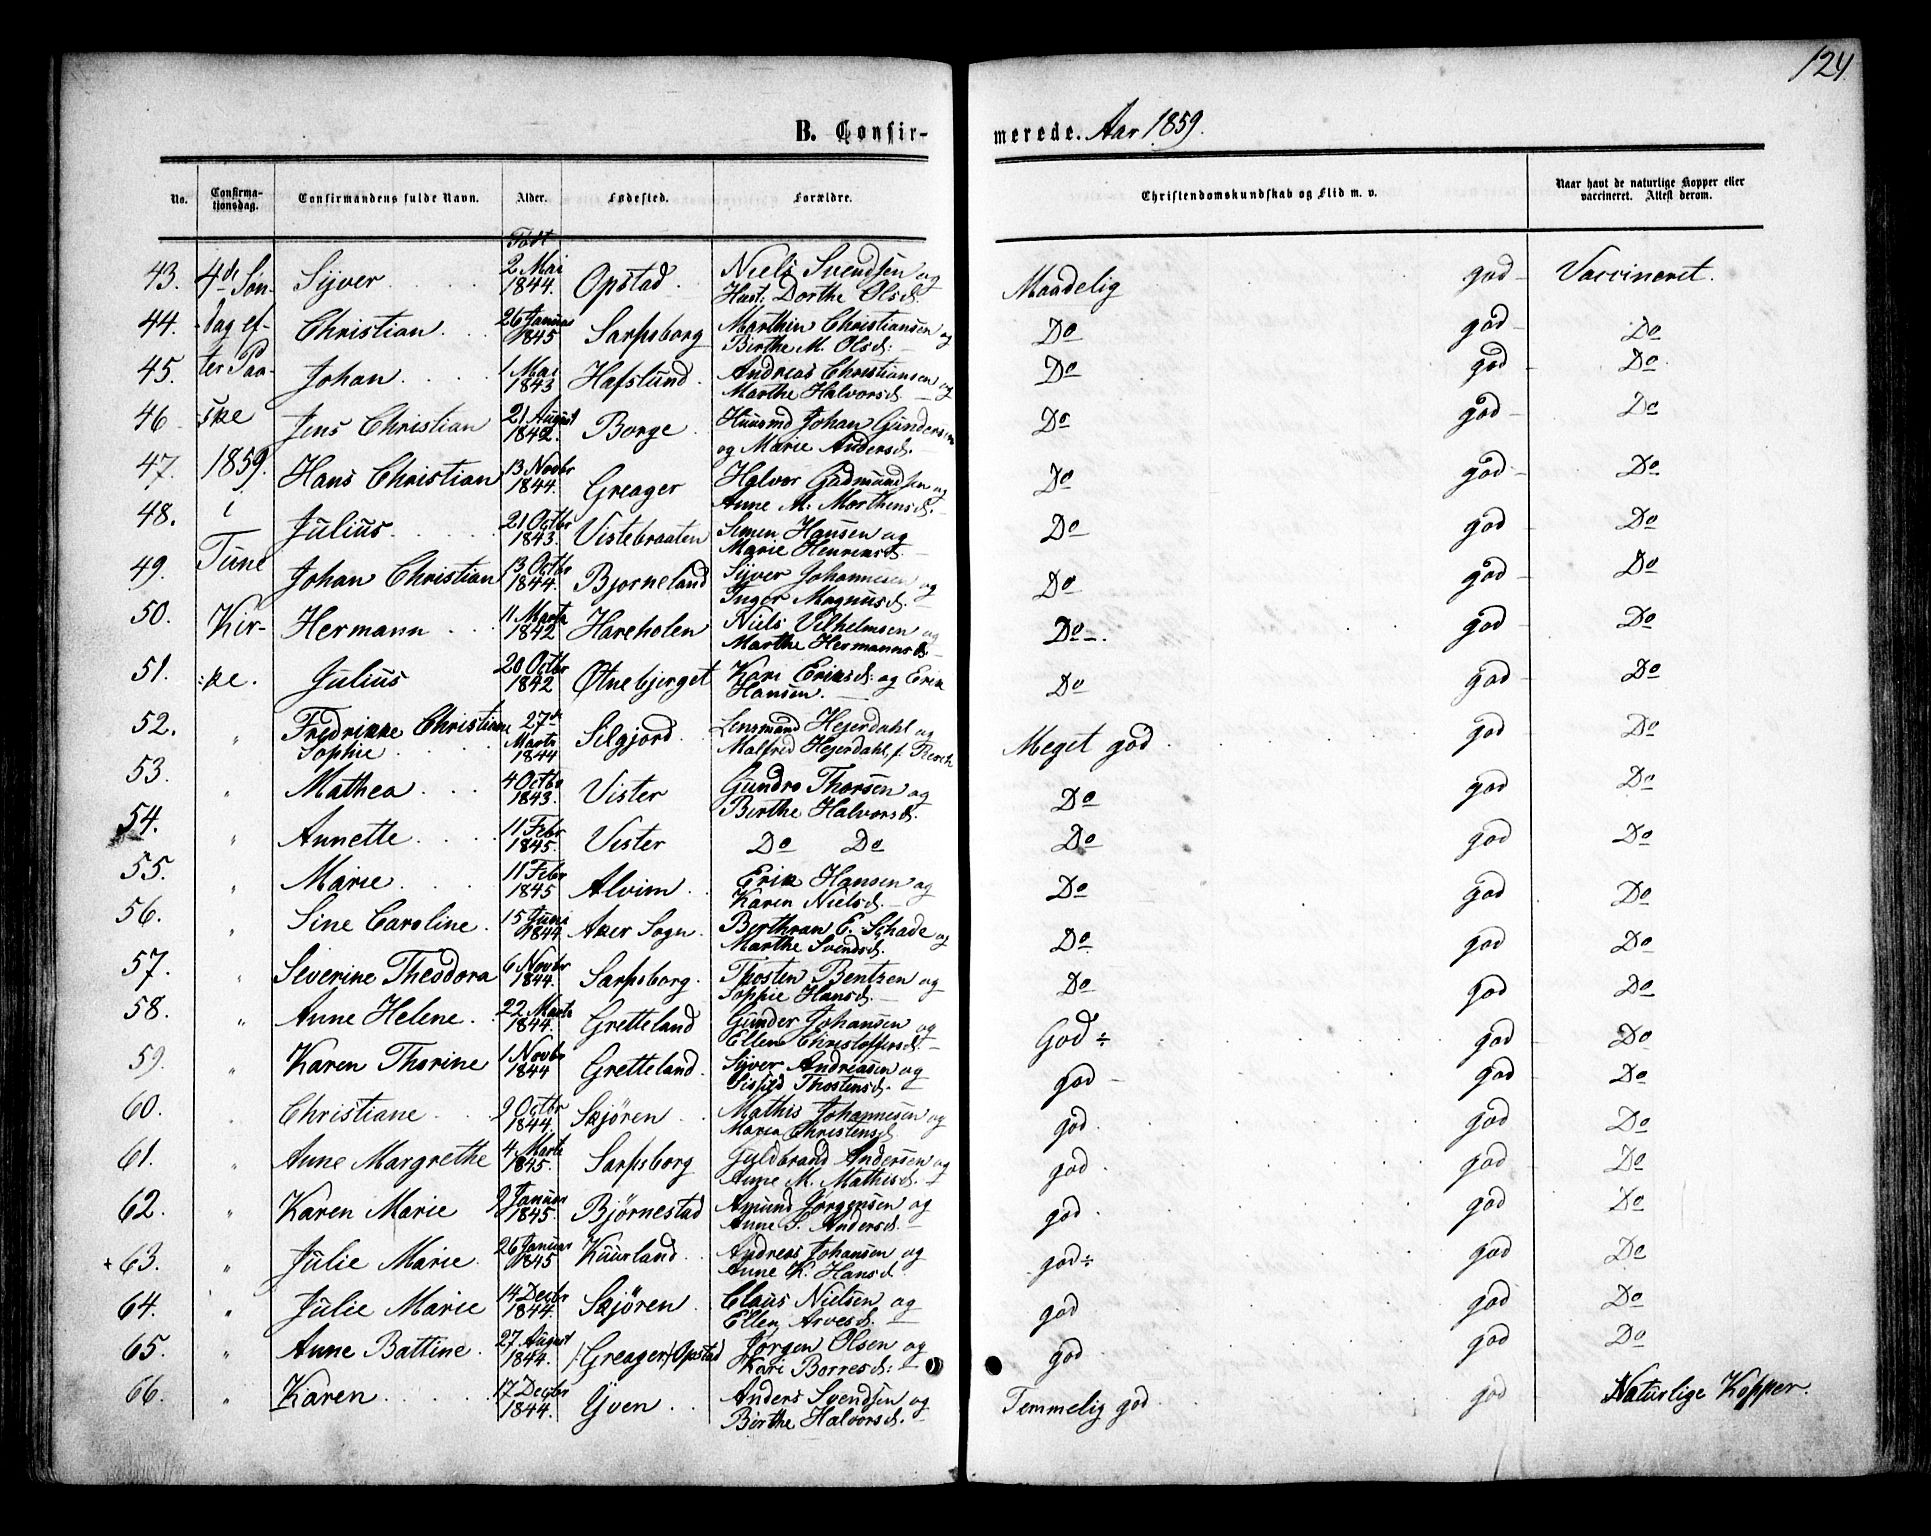 124
B. Confir-
merede. Aar 1859.
No. Confirma-tionsdag. Confirmandens fulde Navn. Alder. Fødested. Forældre. Christendomskundskab og Flid m. v. Naar havt de naturlige Kopper eller vaccineret. Attest derom.
Født
43. 4de Søn- Syver 2 Mai 1844. Opstad. Niels Svendsen og Hust: Dorthe Olsd. Maadelig god Vaccineret.
44. dag ef- Christian 26 Januar 1845 Sarpsborg Marthin Christiansen og Birthe M. Olsd: Do god Do
45. ter Paa- Johan 1 Mai 1843 Hafslund Andreas Christiansen og Marthe Halvorsd. Do god Do
46 ske Jens Christian 21 August 1842. Borge Huusmd Johan Gundersen og Marie Andersd. Do god Do
47. 1859. Hans Christian 13 Novbr 1844. Greager Halvor Gudmundsen og Anne M. Morthensd. Do god Do
48. i Julius 21 Octbr 1843. Vistebraaten Simen Hansen og Marie Henriksd. Do god Do
49. Tune Johan Christian 13 Octbr 1844. Bjorneland Syver Johannesen og Inger Magnusd. Do god Do
50. Kir- Hermann 11 Marts 1842 Hareholen Niels Vilhelmsen og Marthe Hermannsd. Do god Do
51. :ke. Julius 20 Octbr 1842 Øtnebjerget Kari Eriksd: og Erik Hansen. Do god Do
52. " Fredrikke Christiane Sophie 27de Marts 1844 Silgjord Lensmand Hejerdahl og Malfred Hejerdahl, f. Meget god god Do
53. " Mathea 4 Octbr 1843. Vister Gundro Thorsen og Birthe Halvorsd. Do god Do
54. " Annette 11 Febr 1845. Vister Do Do Do god Do
55. " Marie 11 Febr 1845 Alvim Erik Hansen og Karen Nielsd. Do god Do
56. " Sine Caroline 15 Juni 1844 Aker Sogn Berthran E. Schade og Marthe Svendsd. Do god Do
57. " Severine Theodora 6 Novbr 1844. Sarpsborg. Thosten Bentzen og Sophie Hansd. Do god Do
58. " Anne Helene 22 Marts 1844. Gretteland Gunder Johansen og Ellen Christoffersd. God god Do
59. " Karen Thorine 1 Novbr 1844 Gretteland Syver Andreasen og Thostensd. god god Do
60. " Christiane 2 Octbr 1844. Skjøren Mathis Johannesen og Maria Christensd. god god Do
61. " Anne Margrethe 4 Marts 1845. Sarpsborg Gyldbrand Andersen og Anne M. Mathisd. god god Do
62. " Karen Marie 2 Januar 1845. Bjørnestad Amund Jørgensen og Anne S. Andersd. god god Do
+ 63. " Julie Marie 26 Januar 1845 Kuurland Andreas Johansen og Anne K. Hansd. god god Do
64. " Julie Marie 14 Decbr 1844. Skjøren Claus Nielsen og Ellen Arvesd. god god Do
65. " Anne Battine 27 August 1844. /:Greager:/ Opstad Jørgen Olsen og Kari Borresd: god god Do
66. " Karen 17 Decbr 1844. Yven Anders Svendsen og Birthe Halvorsd. Temmelig god god Naturlige Kopper.